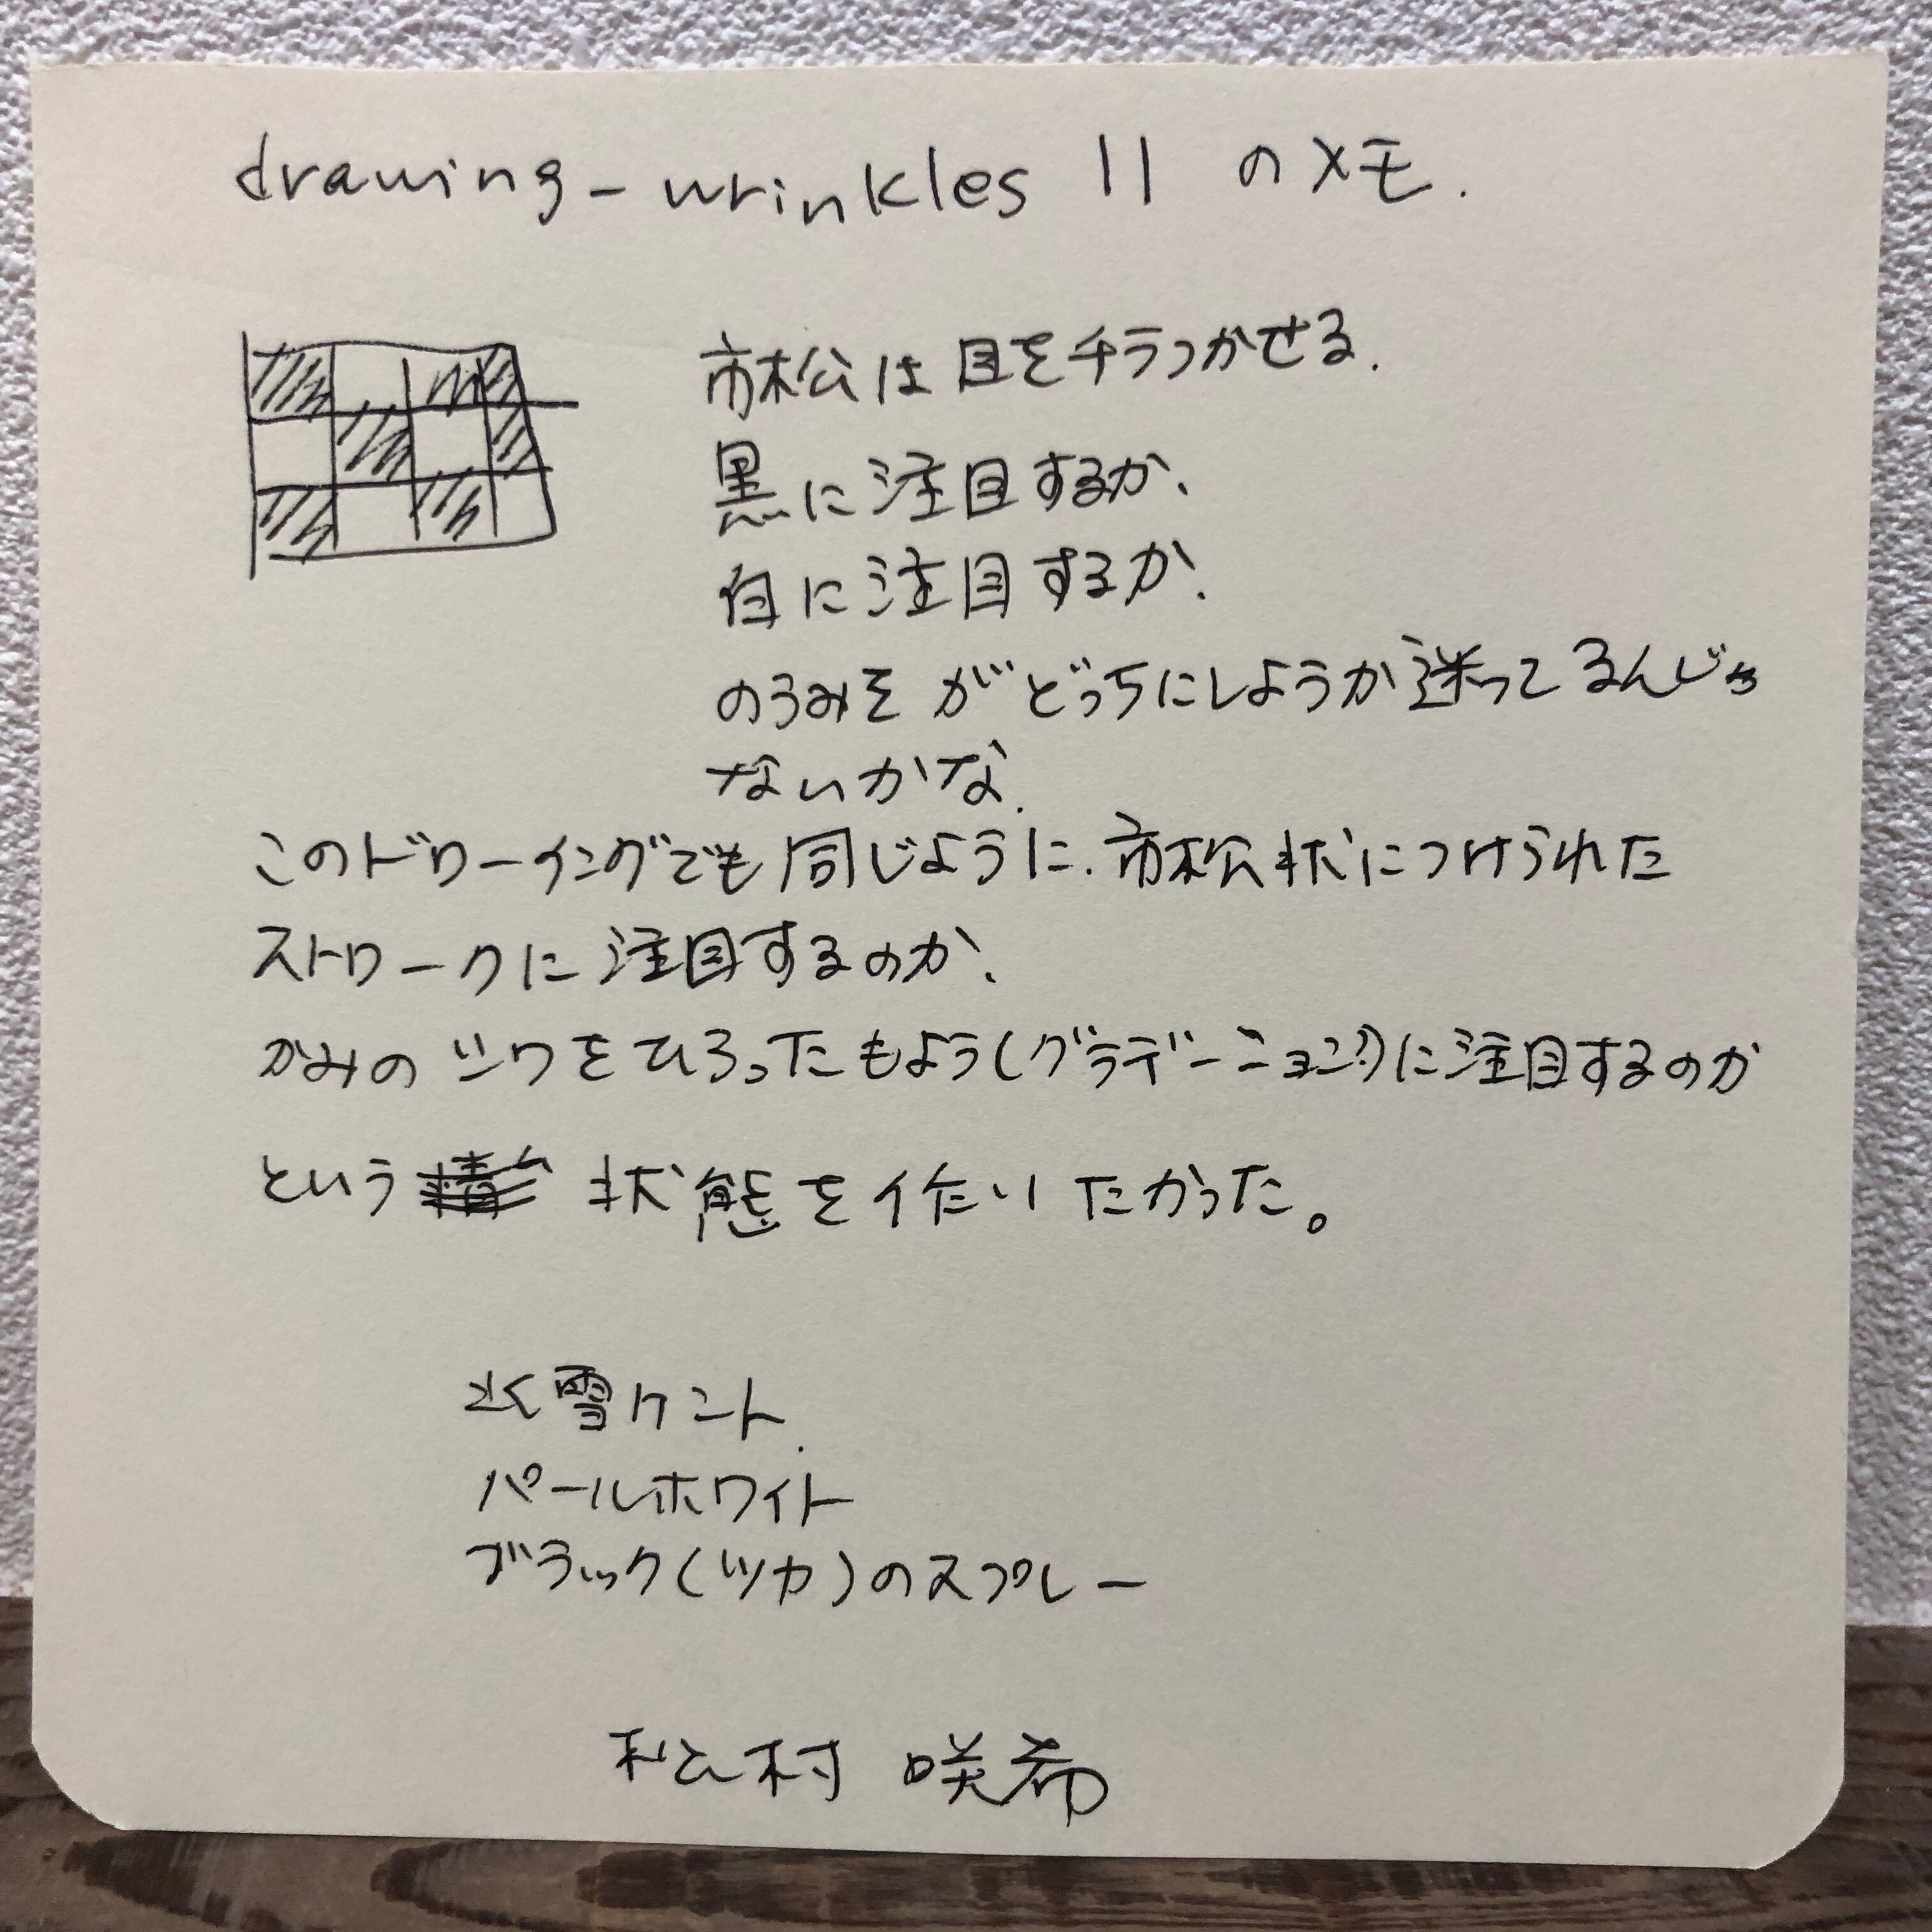 drawing-wrinkles 11 のメモ.
市松は目をチラつかせる.
黒に注目するか、
白に注目するか、
のうみそがどっちにしようか迷ってるんじゃ
ないかな.
このドローイングでも同じように.市松状につけられた
ストロークに注目するのか、
かみのシワをひろったもよう(グラデーション?)に注目するのか
という 状態を作りたかった。
氷雪ケント.
パールホワイト
ブラック(ツカ)のスプレー
松村 咲希